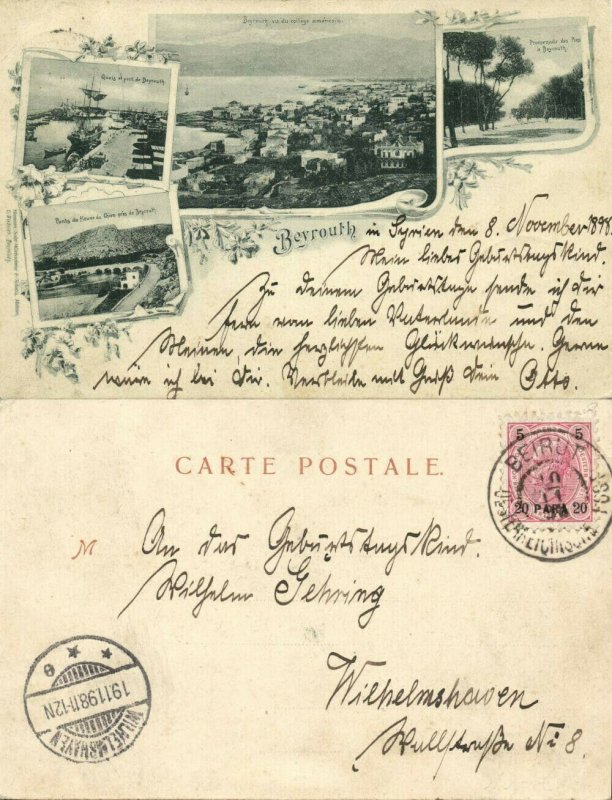 Beyrouth, vu du collège américain.
Quais et port de Beyrouth
Promenade des Pins
à Beyrouth.
du fleuve du Chien près de Beyrouth
Beyrouth in Syrien den 8. November 1898.
Mein liebes Geburtstagskind.
Zu deinem Geburtstage sende ich dir
fern vom lieben Vaterlande und den
Meinen, die herzlichsten Glückwünsche. Gerne
wäre ich bei dir. Verbleibe mit Gruß dein Otto.
CARTE POSTALE.
5 5
20 PARA 20
BEIRUT
OESTERREICHISCHE POST
M
An das Geburtstagskind.
Wilhelm Gehring
Wilhelmshaven
Wallstraße No 8.
19.11.98.11-12N
WILHELMSHAVEN